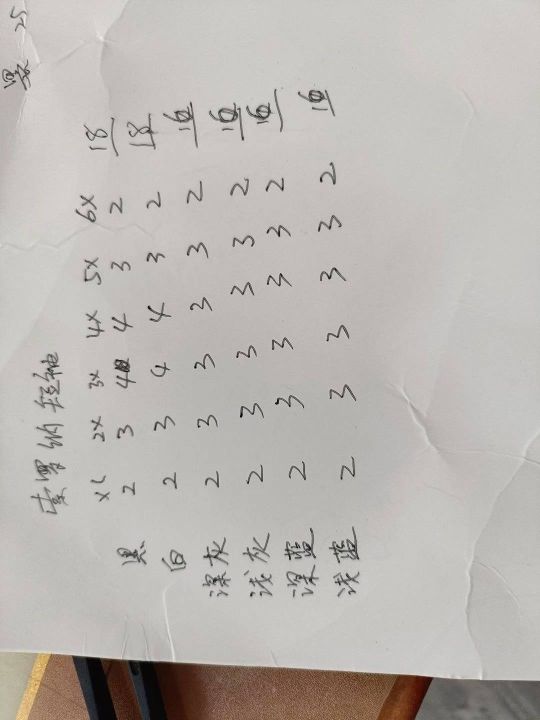 索罗纳短袖
XL 2X 3X 4X 5X 6X
黑 2 3 4 4 3 2 18
白 2 3 4 4 3 2 18
深灰 2 3 3 3 3 2 16
浅灰 2 3 3 3 3 2 16
深蓝 2 3 3 3 3 2 16
浅蓝 2 3 3 3 3 2 16
25